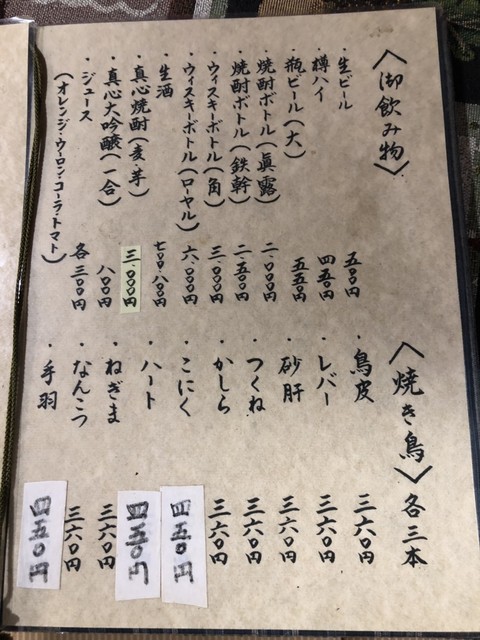 〈御飲み物〉
・生ビール 五〇〇円
・樽ハイ 四五〇円
・瓶ビール(大) 五五〇円
・焼酎ボトル(眞露) 二.〇〇〇円
・焼酎ボトル(鉄幹) 二.五〇〇円
・ウィスキーボトル(角) 三.〇〇〇円
・ウィスキーボトル(ローヤル) 六.〇〇〇円
・生酒 七〇〇・八〇〇円
・真心焼酎(麦・芋) 三.〇〇〇円
・真心大吟醸(一合) 八〇〇円
・ジュース 各三〇〇円
(オレンジ・ウーロン・コーラ・トマト)
〈焼き鳥〉各三本
・鳥皮 三六〇円
・レバー 三六〇円
・砂肝 三六〇円
・つくね 三六〇円
・かしら 三六〇円
・こにく 四五〇円
・ハート 四五〇円
・ねぎま 三六〇円
・なんこつ 三六〇円
・手羽 四五〇円